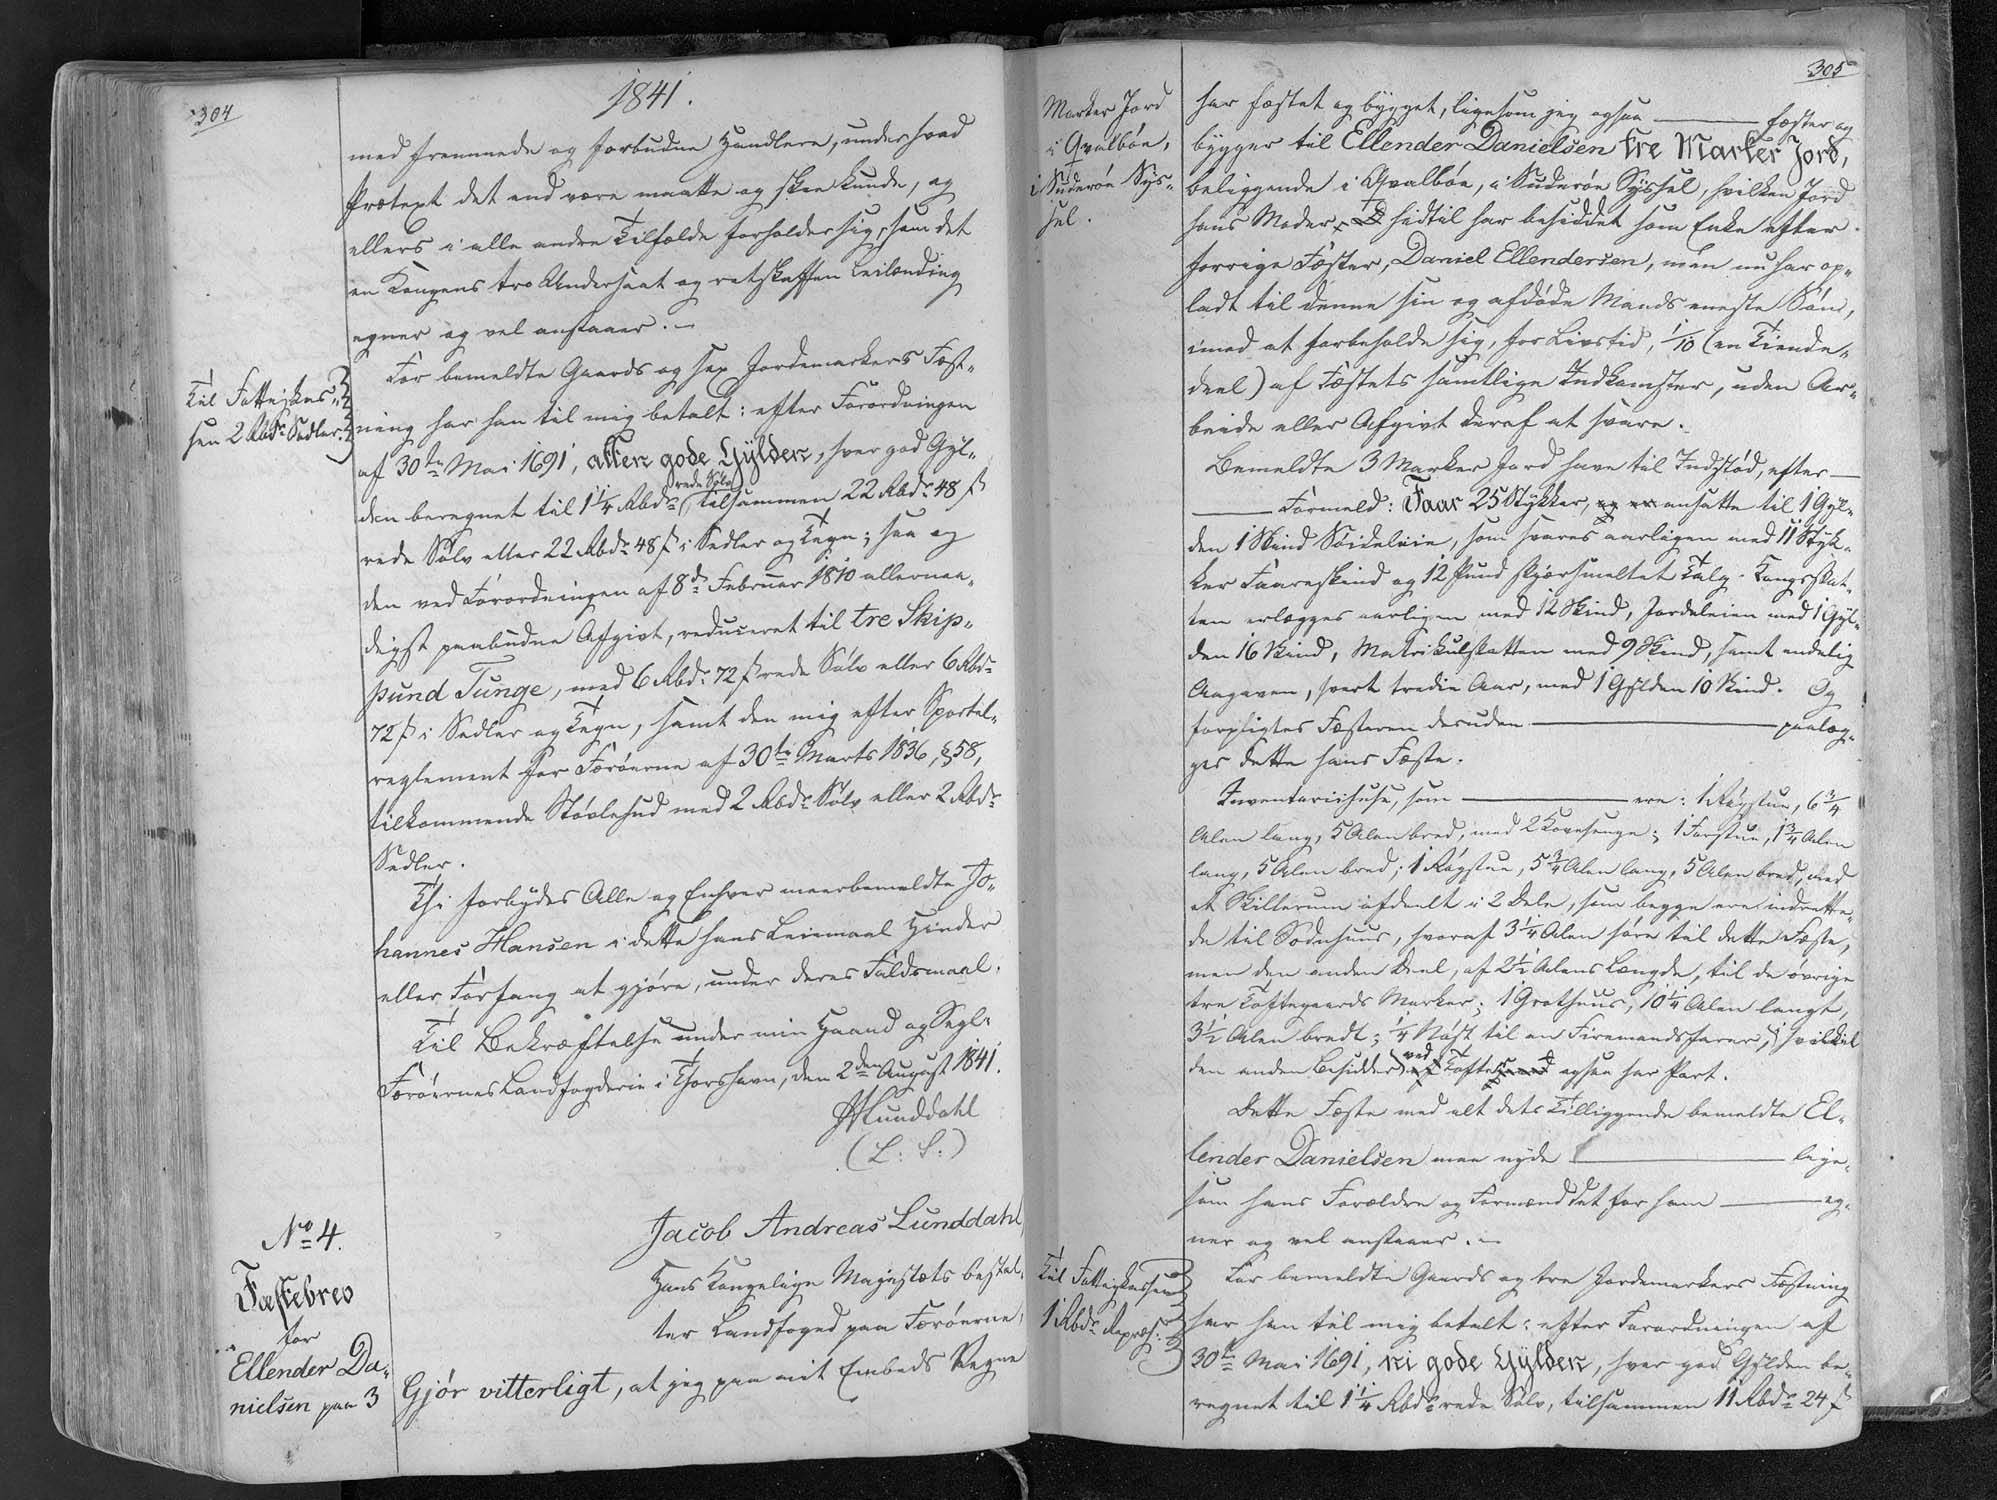 304
1841.
med fremmede og forbudne Handlere, under hvad
Prætext det end være maatte og skee kunde, og
ellers i alle andre Tilfælde forholder sig, som det
en Kongens tro Undersaat og retskaffen Leilænding
egner og vel anstaaer. —
For bemeldte Gaards og sex Jordemarkers Fæst-
Til Fattigkas-
sen 2 Rbdr Sedler.
ning har han til mig betalt: efter Forordningen
af 30te Mai 1691, atten gode Gylden, hver god Gyl-
den beregnet til 1 1/4 Rbdr rede Sølv, tilsammen 22 Rbdr 48 ß
rede Sølv eller 22 Rbdr 48 ß i Sedler og Tegn; saa og
den ved Forordningen af 8de Februar 1810 allernaa-
digst paabudne Afgivt, reduceret til tre Skip-
pund Tunge, med 6 Rbdr 72 ß rede Sølv eller 6 Rbdr
72 ß i Sedler og Tegn, samt den mig efter Sportel-
reglement for Færøerne af 30te Marts 1836, § 58,
tilkommende Støvlehud med 2 Rbdr Sølv eller 2 Rbdr
Sedler.
Thi forbydes Alle og Enhver meerbemeldte Jo-
hannes Hansen i dette hans Leiemaal Hinder
eller Forfang at gjøre, under deres Faldsmaal.
Til Bekræftelse under min Haand og Segl.
Færøernes Landfogderie i Thorshavn, den 2den August 1841.
Lunddahl
(L. S.)
No 4.
Fæstebrev
for
Ellender Da-
nielsen paa 3
Jacob Andreas Lunddahl,
Hans Kongelige Majestæts bestal-
ter Landfoged paa Færøerne,
Gjør vitterligt, at jeg paa mit Embeds Vegne
305
Marker Jord
i Qvalbøe,
i Suderøe Sys-
sel.
har fæstet og bygget, ligesom jeg ogsaa — fæster og
bygger til Ellender Danielsen tre Marker Jord,
beliggende i Qvalbøe, i Suderøe Syssel, hvilken Jord
hans Moder hidtil har besiddet som Enke efter
forrige Fæster, Daniel Ellendersen, men nu har op-
ladt til denne sin og afdøde Mands eneste Søn,
imod at forbeholde sig, for Livstid, 1/10 (en Tiende-
deel) af Fæstets samtlige Indkomster, uden Ar-
beide eller Afgivt deraf at svare.
Bemeldte 3 Marker Jord have til Indstød, efter —
— Formeld: Faar 25 Stykker, ansatte til 1 Gyl-
den 1 Skind Søideleie, som svares aarligen med 11 Styk-
ker Faareskind og 12 Pund skjærsmeltet Talg. Kongsskat-
ten erlægges aarligen med 12 Skind, Jordeleien med 1 Gyl-
den 16 Skind, Matrikulskatten med 9 Skind, samt endelig
Aagaven, hvert tredie Aar, med 1 Gylden 10 Skind. Og
forpligtes Fæsteren desuden — paalæg-
ges dette hans Fæste.
Inventariihuse, som — ere: 1 Røgstue, 6 3/4
Alen lang, 5 Alen bred, med 2 Kovesenge; 1 Forstue, 1 3/4 Alen
lang, 5 Alen bred; 1 Røgstue, 5 3/4 Alen lang, 5 Alen bred, med
et Skillerum afdeelt i 2 Dele, som begge ere indrette-
de til Sodnhuus, hvoraf 3 1/4 Alen høre til dette Fæste,
men den anden Deel, af 2 1/2 Alens Længde, til de øvrige
tre Toftegaards Marker; 1 Grothuus, 10 1/4 Alen langt,
3 1/2 Alen bredt; 1/4 Nøst til en Firemandsfarer, i hvilket
den anden Besidder ved Toften ogsaa har Part.
Dette Fæste med alt dets Tilliggende bemeldte El-
lender Danielsen maa nyde — lige-
som hans Forældre og Formænd det før ham — eg-
ner og vel anstaaer. —
Til Fattigkassen
1 Rbdr Repræs:
For bemeldte Gaards og tre Jordemarkers Fæstning
har han til mig betalt: efter Forordningen af
30te Mai 1691, ni gode Gylden, hver god Gylden be-
regnet til 1 1/4 Rbdr rede Sølv, tilsammen 11 Rbdr 24 ß